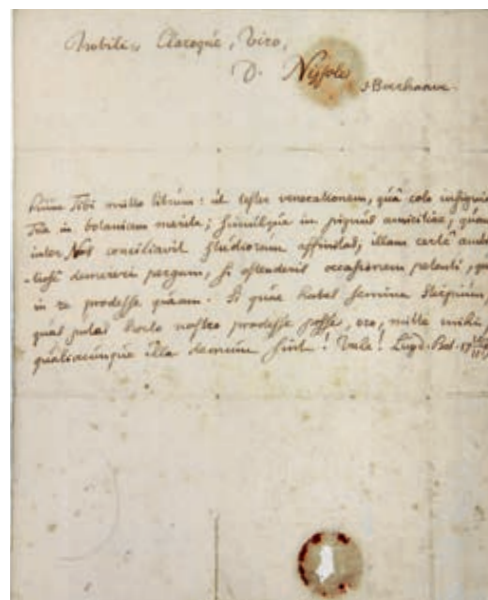 Nobili, Claroque, Viro,
D. Nissole
Boerhaave.
Hunc Tibi mitto librum: ut tester venerationem, quâ colo insignia
Tua in botanicam merita; simulque in pignus amicitiae, quam
inter Nos conciliavit studiorum affinitas; illam certe
demereri pergam, si ostenderis occasionem petenti, quâ
in re prodesse queam. Si quae habes semina stirpium,
quas putas horto nostro prodesse posse, oro, mitte mihi
qualiacunque illa demum sint! Vale! Lugd. Bat. 17